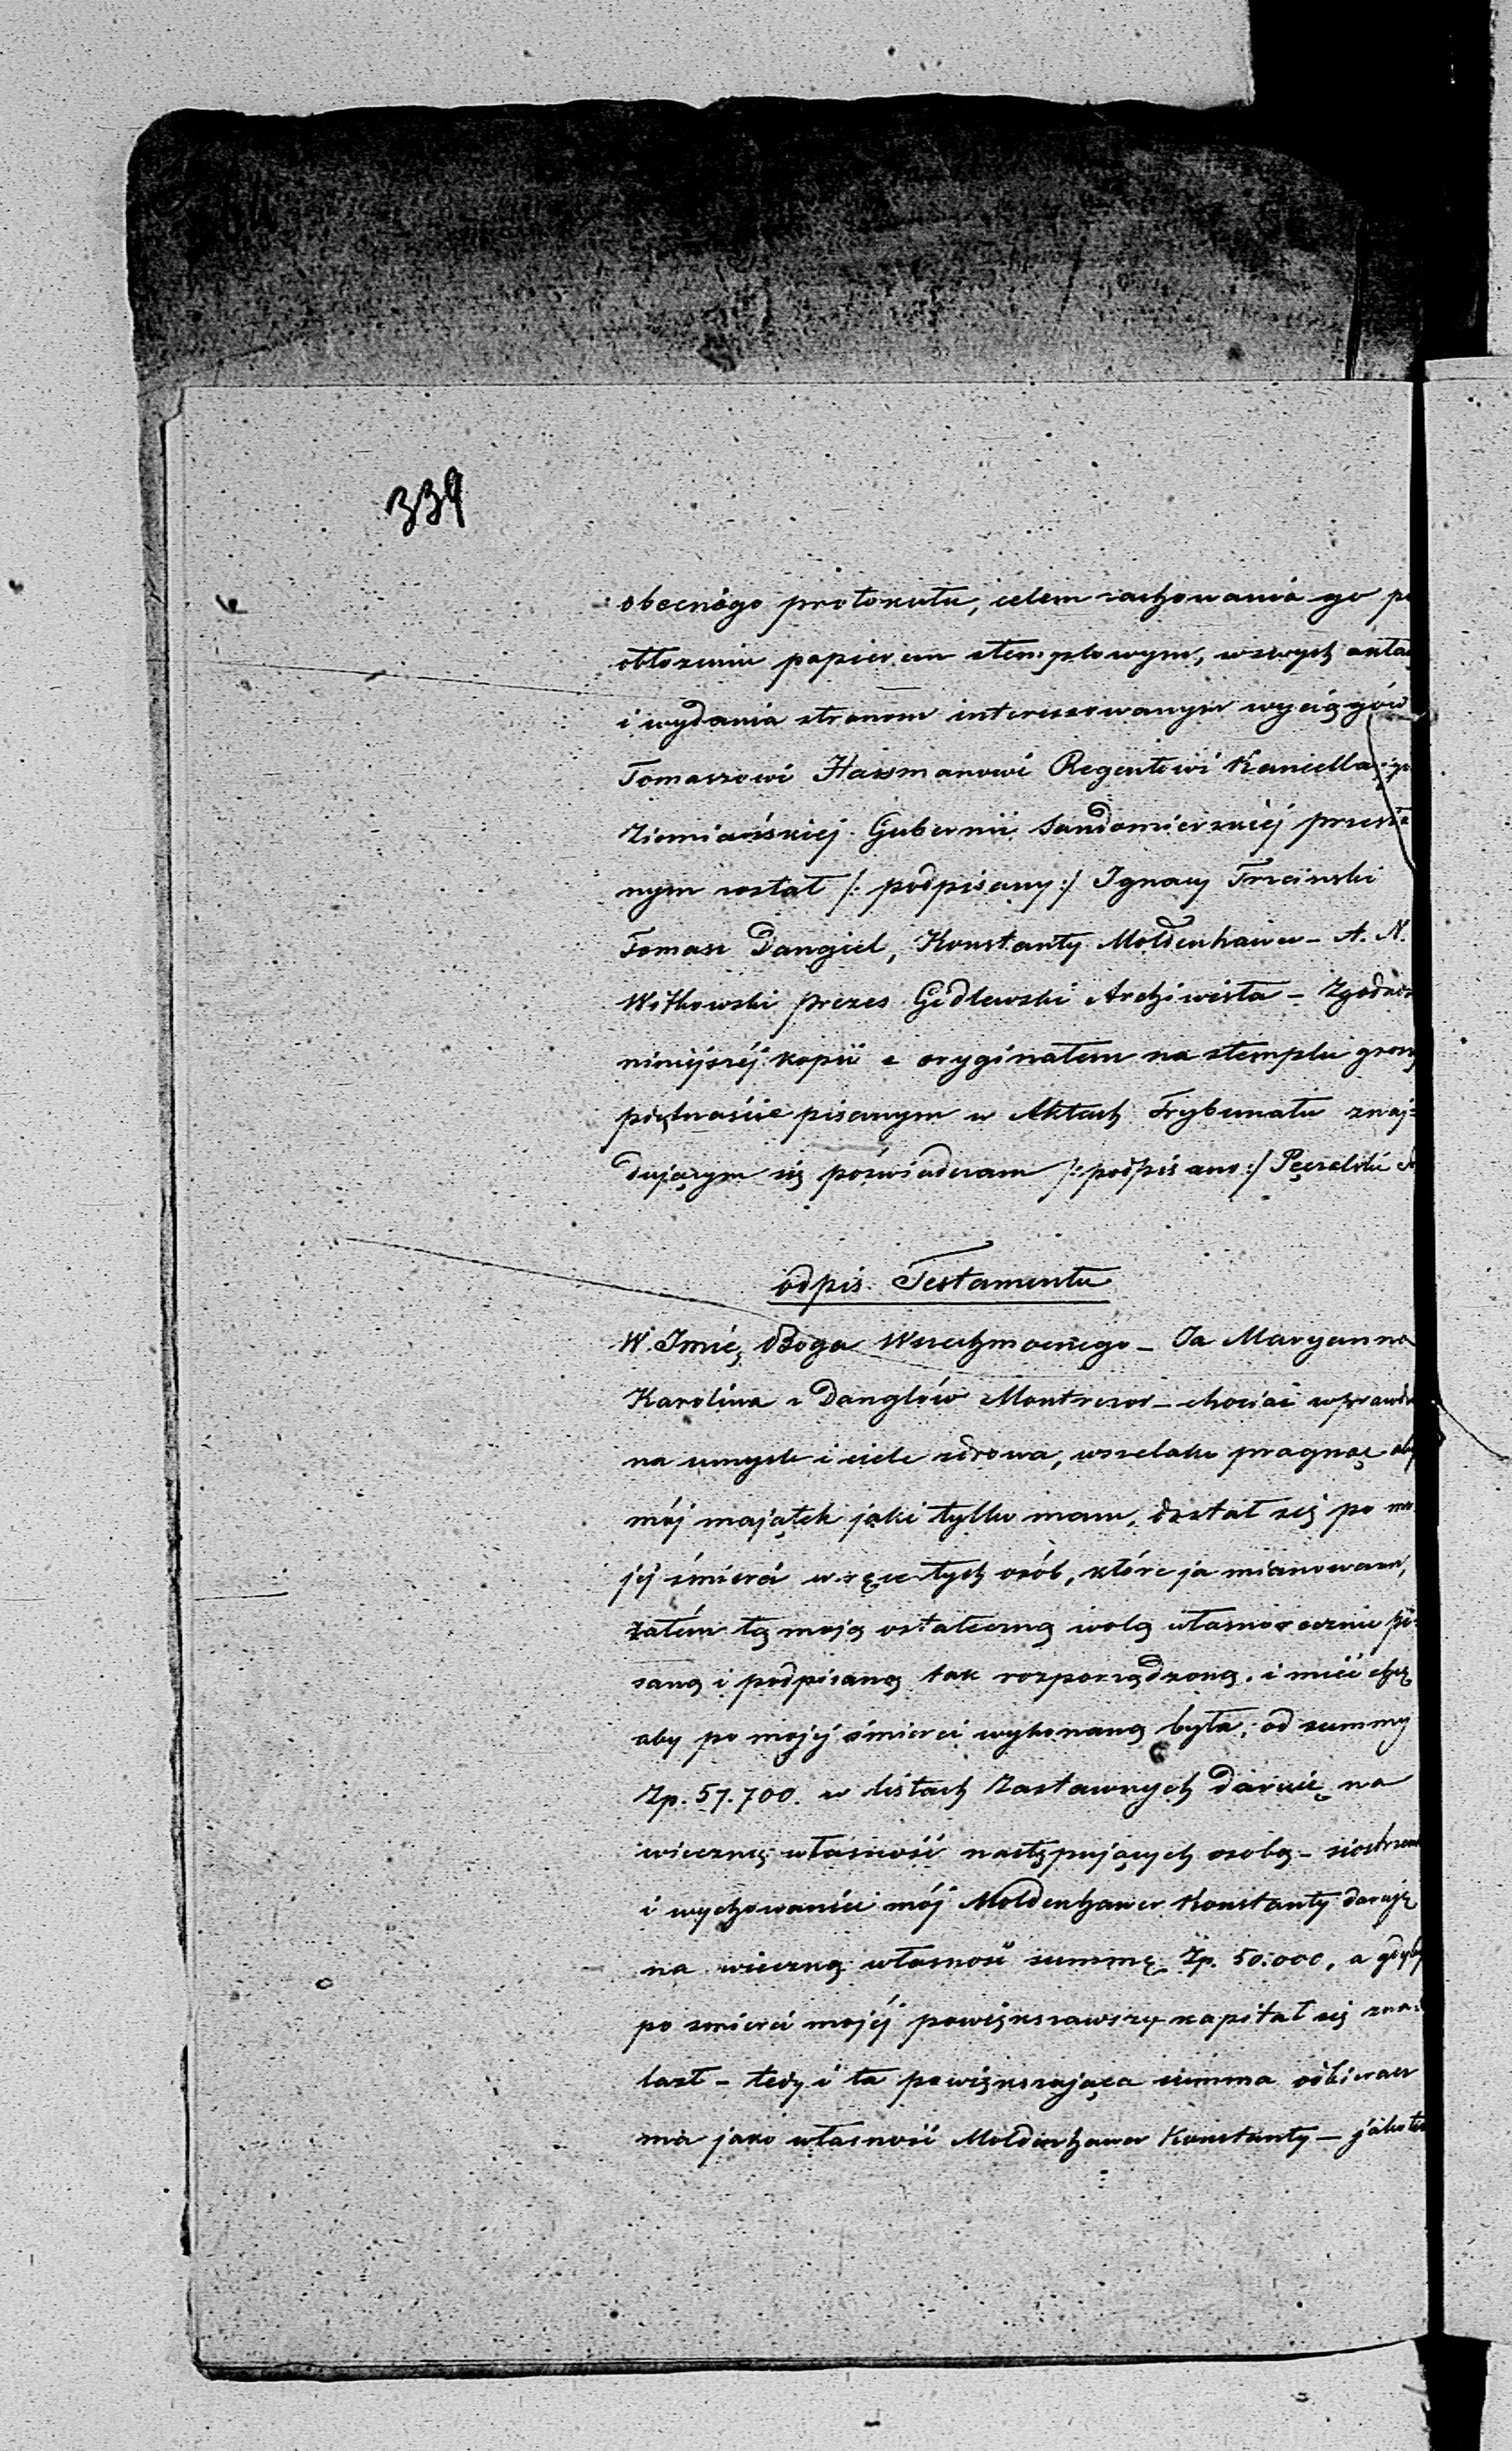 339
obecnego protokułu, celem zachowania go po
obłożeniu papierem stemplowym, w swych aktach
i wydania stronom interessowanym wyciągów
Tomaszowi Hassmanowi Regentowi Kancellaryi
Ziemiańskiej Gubernii Sandomierskiéj przesła
nym został /: podpisany :/ Ignacy Trzcinski
Tomasz Dangiel, Konstanty Moldenhawer – A. N.
Witkowski prezes Gidlewski Archiwista – Zgodność
niniejszéj kopii z oryginałem na stemplu groszy
piętnaście pisanym w Aktach Trybunału znaj=
dującym się poświadczam /: podpisano :/ Pęczelski
odpis Testamentu
W Imię Boga Wszechmocnego – Ja Maryanna
Karolina z Danglów Montresor – chociaż wprawdzie
na umyśle i ciele zdrowa, wszelako pragnąc aby
mój majątek jaki tylko mam, dostał się po mo
jéj śmierci w ręce tych osób, które ja mianowałam,
zatém tą moją ostateczną wolą własnoręcznie pi=
saną i podpisaną tak rozporządzoną i mieć chcę
aby po mojéj śmierci wykonaną była; od summy
Zp. 57.700. w listach Zastawnych daruię na
wieczną własność następujących osobą – siostrzeńc
i wychowańcu mój Moldenhawer Konstanty daruję
na wieczną własność summę Zp. 50.000, a gdyby
po śmierci mojéj powiększawszy kapitał się zna=
lazł – tedy i ta powiększająca summa odbierać
ma jako własność Moldenhawer Konstanty – jako też